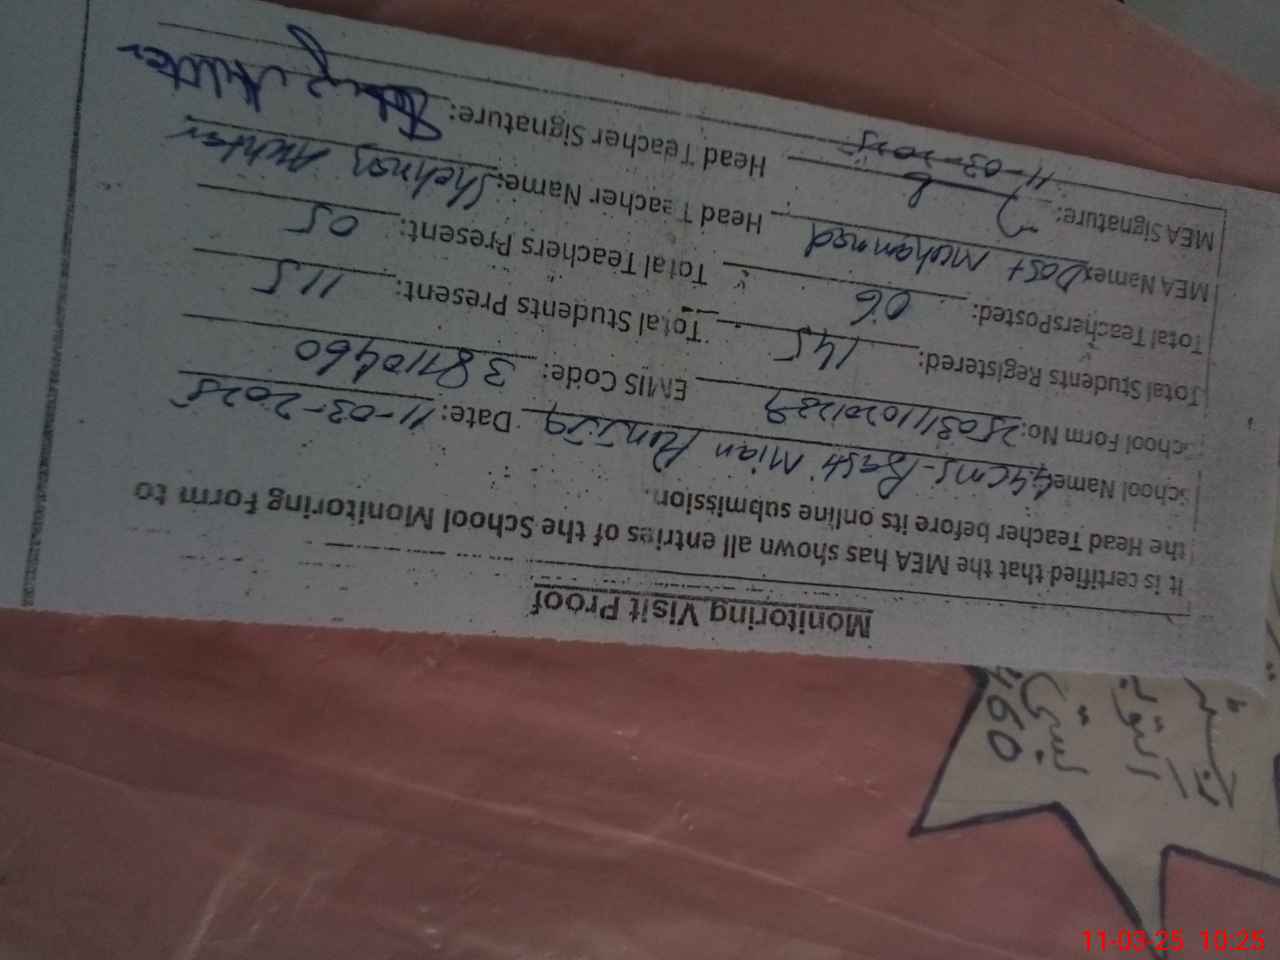 Monitoring Visit Proof
It is certified that the MEA has shown all entries of the School Monitoring Form to
the Head Teacher before its online submission.
School Name: Mian Date: 11-03-2025
School Form No: EMIS Code: 38110460
Total Students Registered: 145 Total Students Present: 115
Total Teachers Posted: 06 Total Teachers Present: 05
MEA Name: Dost Muhammad Head Teacher Name: Shehnaz Akhtar
MEA Signature: Head Teacher Signature:
11-03-2025
11-03-25 10:25